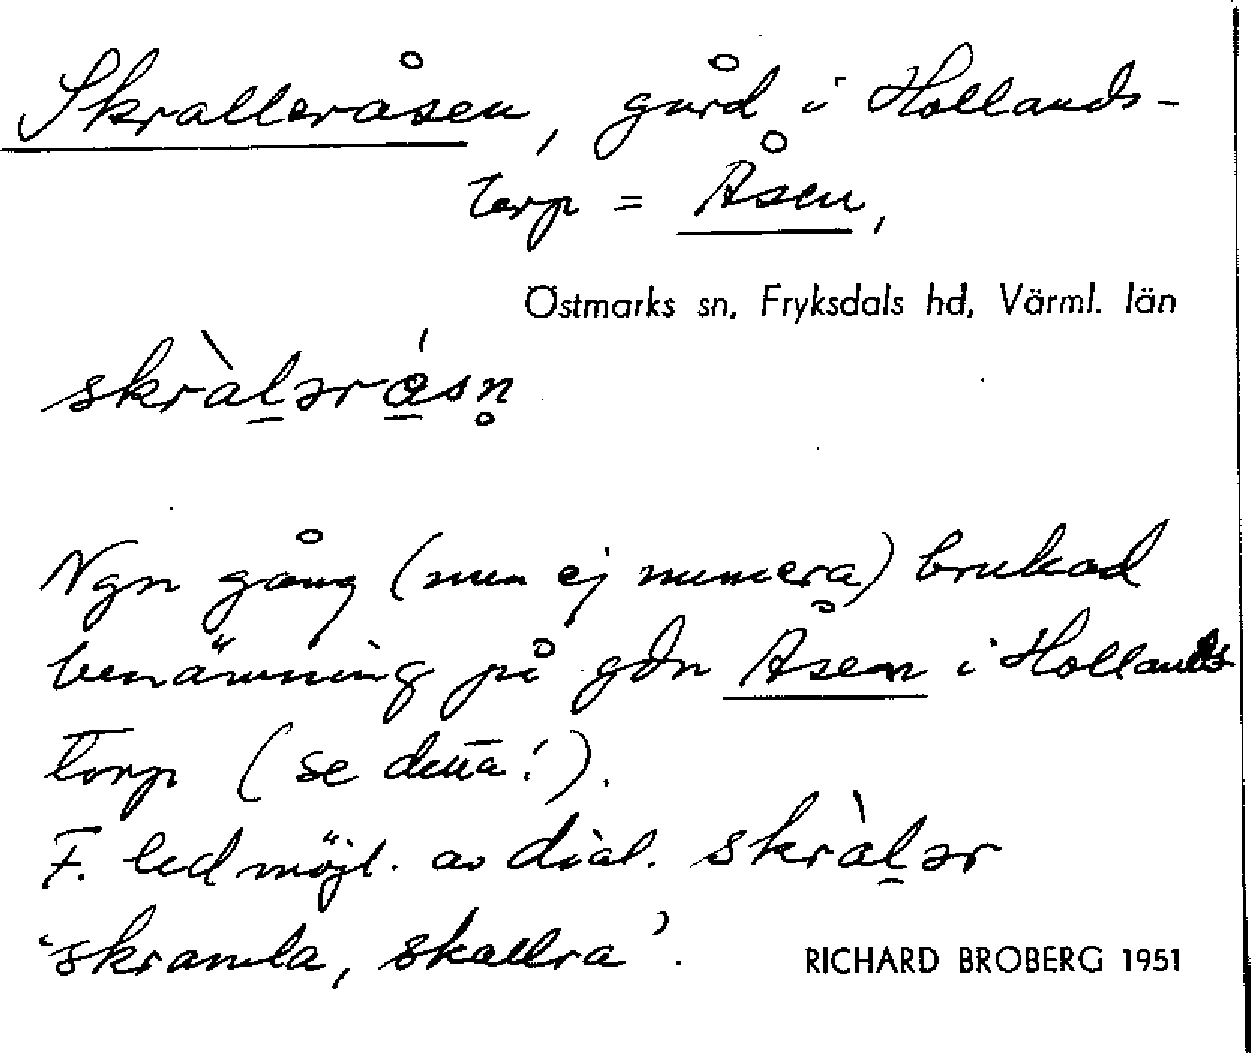 Skralleråsen, gård i Hollands-
torp = Åsen,
Östmarks sn, Fryksdals hd, Värml. län
skràl̲ərǻ̲sn̥
Ngn gång (men ej numera) brukad
benämning på gdn Åsen i Hollands
torp (se detta!).
F. led möjl. av dial. skràl̲ər
‘skramla, skallra’.
RICHARD BROBERG 1951